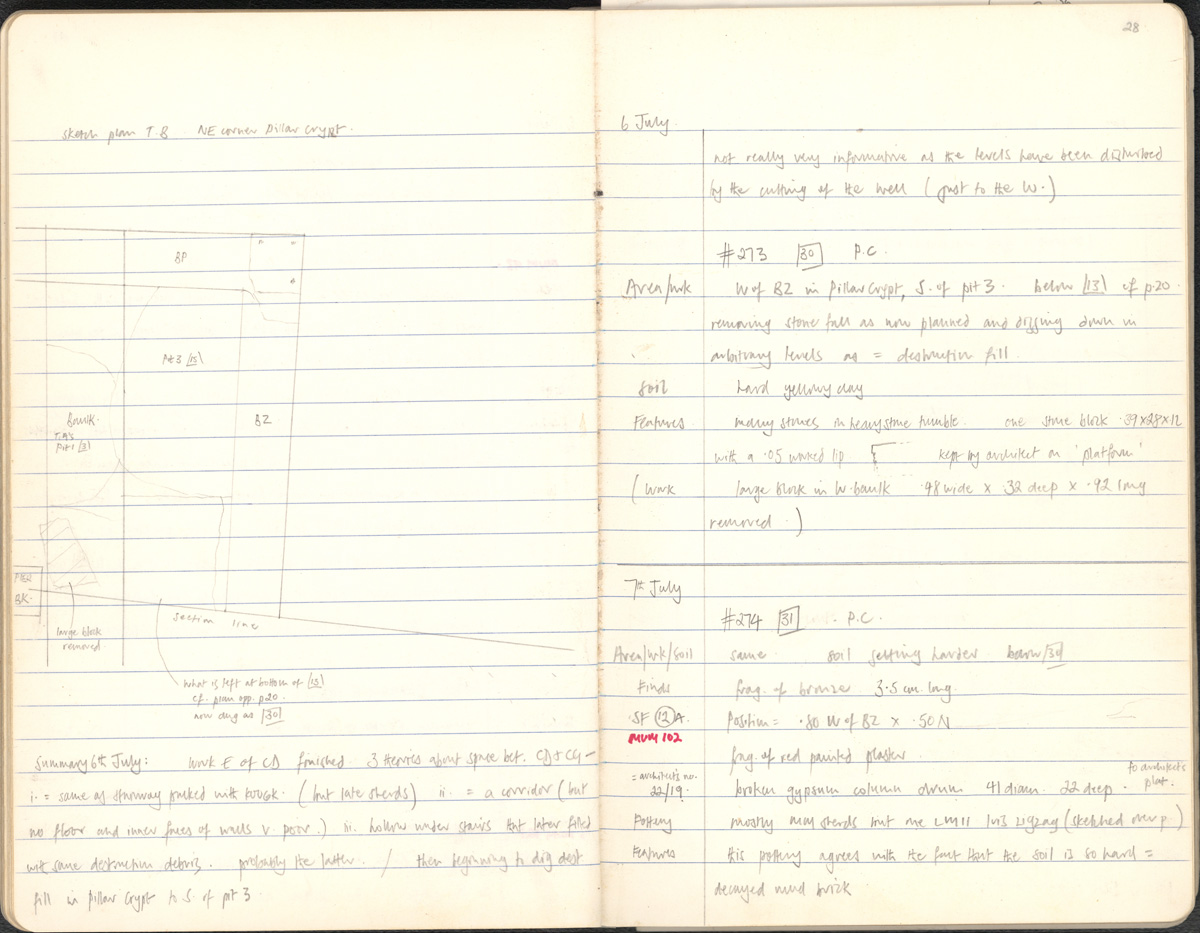 Sketch plan T.8 NE corner Pillar Crypt.
BP
Pit 3 [15]
Baulk.
T.A's
Pit 1 [3]
BZ
PIER
BK.
large block
removed
section line
what is left at bottom of [15]
cf. plan opp. p20.
now dug as [30]
Summary 6th July: Work E of CD finished. 3 theories about space bet. CD + CG –
i. = same as stairway packed with (but late sherds) ii. = a corridor (but
no floor and inner faces of walls v. poor.) iii. hollow under stairs that later filled
with same destruction debris. probably the latter. / then beginning to dig dest
fill in Pillar Crypt to S. of pit 3
28
6 July.
not really very informative as the levels have been disturbed
by the cutting of the well (just to the W.)
#273 [30] P.C.
Area/wk W of BZ in Pillar Crypt, S. of pit 3. below [13] cf p.20.
removing stone fall as now planned and digging down in
arbitrary levels as = destruction fill.
Soil hard yellowy clay
Features many stones in heavy stone tumble. one stone block .39x28x12
with a .05 worked lip kept by architect on 'platform'
(Work large block in W. baulk .48 wide x .32 deep x .92 long
removed.)
7th July
#274 [31] P.C.
Area/wk/soil same. soil getting harder. below [30]
Finds frag. of bronze 3.5 cm long.
SF (12) A. Position = .80 W of BZ x .50 N
MUM 102
frag. of red painted plaster.
= architect's no.
22/19. broken gypsum column drum 41 diam. 22 deep. to architect's
plat.
Pottery mostly sherds but one LMII zigzag (sketched over p.)
Features this pottery agrees with the fact that the soil is so hard =
decayed mud brick.